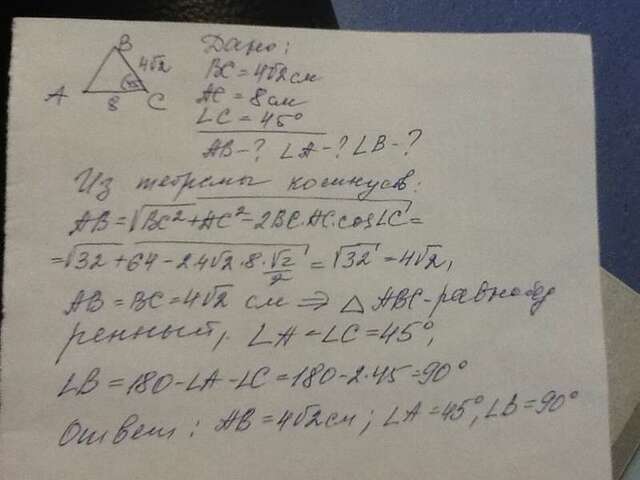 B
4√2
A
8
45
C
Дано:
BC = 4√2 см
AC = 8 см
∠C = 45°
AB - ? ∠A - ? ∠B - ?
Из теоремы косинусов:
AB = √BC² + AC² - 2BC·AC·cos∠C =
= √32 + 64 - 2·4√2·8·√2/2 = √32 = 4√2,
AB = BC = 4√2 см ⇒ △ABC - равнобед
ренный, ∠A = ∠C = 45°,
∠B = 180 - ∠A - ∠C = 180 - 2·45 = 90°
Ответ: AB = 4√2 см; ∠A = 45°, ∠B = 90°